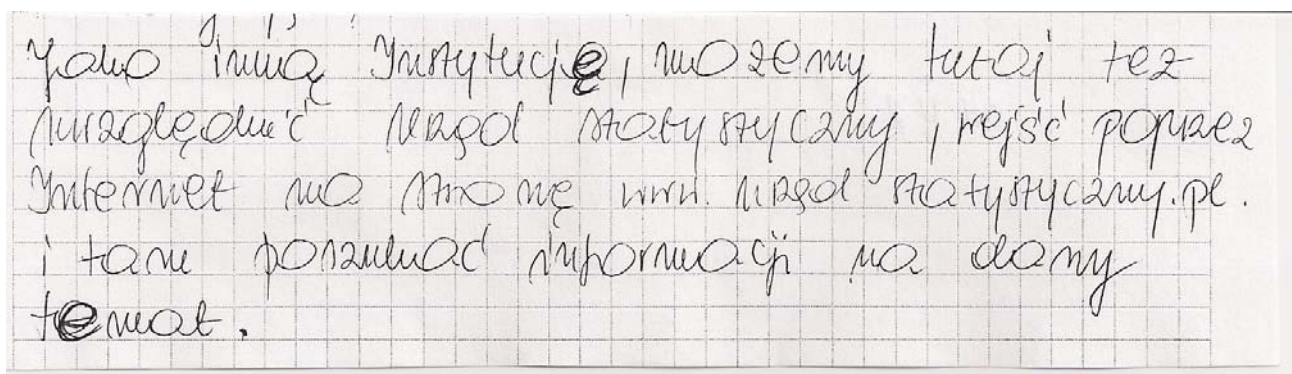 Jako inną Instytucję, możemy tutaj też
uwzględnić Urząd statystyczny, wejść poprzez
Internet na stronę www. urząd statystyczny.pl.
i tam poszukać informacji na dany
temat.